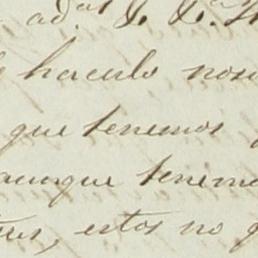 ad.ᵒˢ
hacerlo nos
que tenemos
aunque tenemo
estos no